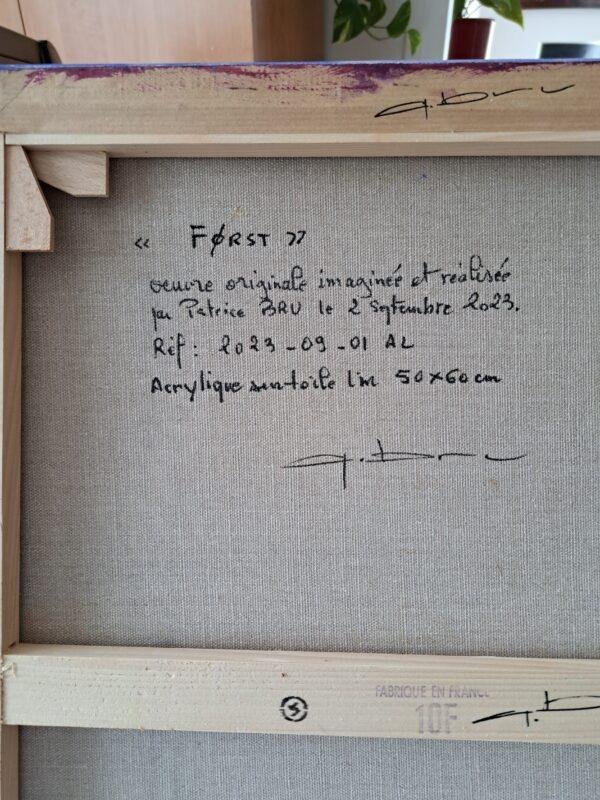 « FØRST »
oeuvre originale imaginée et réalisée
par Patrice BRU le 2 Septembre 2023.
Réf : 2023-09-01 AL
Acrylique sur toile lin 50x60cm
FABRIQUE EN FRANCE
10F